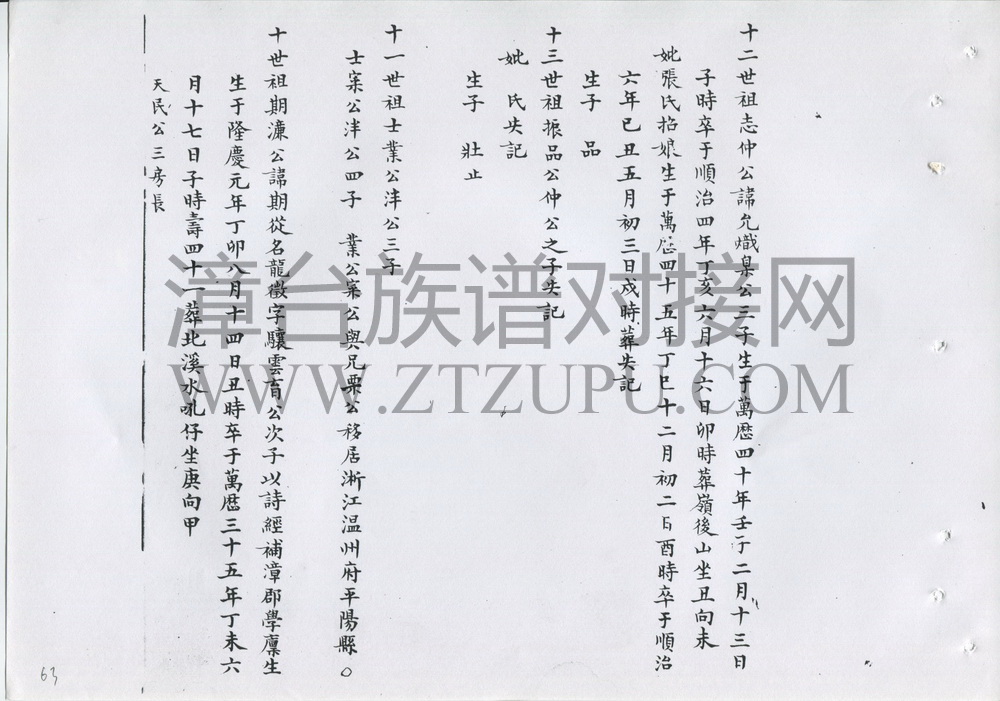 十二世祖志仲公諱允熾臯公三子生于萬曆四十年壬子二月十三日
子時卒于順治四年丁亥六月十六日卯時葬嶺後山坐丑向未
妣張氏招娘生于萬曆四十五年丁巳十二月初二日酉時卒于順治
六年己丑五月初三日戌時葬失記
生子 品
十三世祖振品公仲公之子失記
妣 氏失記
生子 壯止
十一世祖士業公泮公三子
士寀公泮公四子 業公寀公與兄栗公移居淅江温州府平陽縣。
十世祖期濂公諱期從名龍徵字驤雲育公次子以詩經補漳郡學廩生
生于隆慶元年丁卯八月十四日丑時卒于萬曆三十五年丁未六
月十七日子時壽四十一葬北溪水吼仔坐庚向甲
天民公三房長
漳台族谱对接网
WWW.ZTZUPU.COM
63